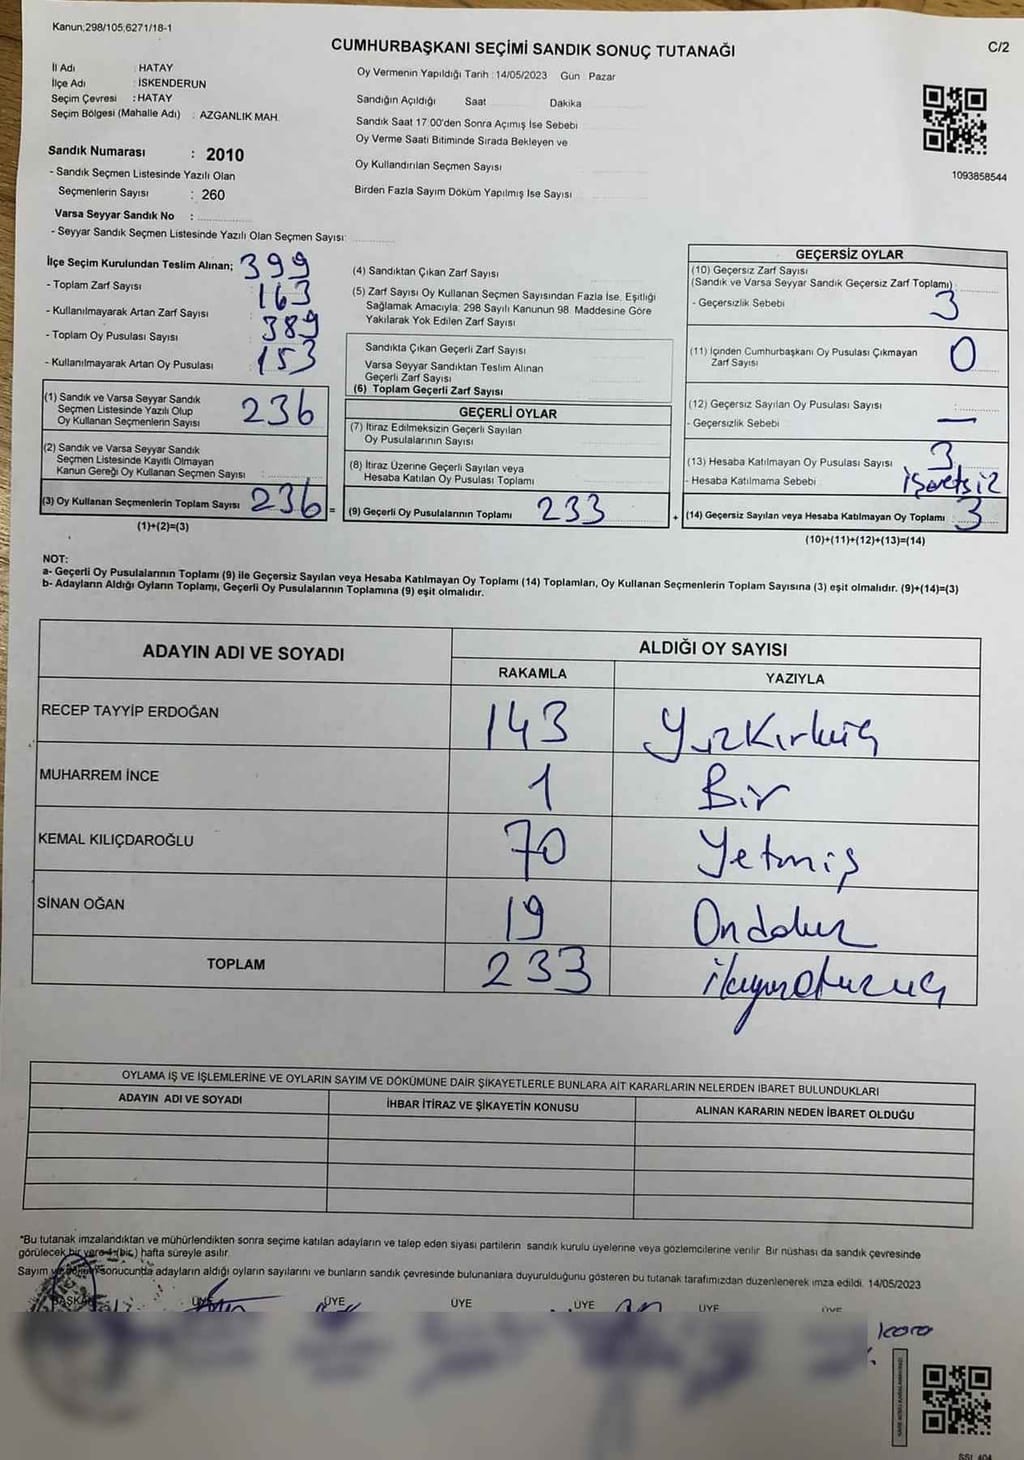 Kanun;298/105,6271/18-1
CUMHURBAŞKANI SEÇİMİ SANDIK SONUÇ TUTANAĞI
C/2
İl Adı : HATAY
İlçe Adı : İSKENDERUN
Seçim Çevresi : HATAY
Seçim Bölgesi (Mahalle Adı) : AZGANLIK MAH.
Oy Vermenin Yapıldığı Tarih : 14/05/2023 Gün : Pazar
Sandığın Açıldığı Saat Dakika
Sandık Saat 17:00'den Sonra Açımış İse Sebebi
Oy Verme Saati Bitiminde Sırada Bekleyen ve
Oy Kullandırılan Seçmen Sayısı
Birden Fazla Sayım Döküm Yapılmış İse Sayısı
1093858544
Sandık Numarası : 2010
- Sandık Seçmen Listesinde Yazılı Olan
Seçmenlerin Sayısı : 260
Varsa Seyyar Sandık No :
- Seyyar Sandık Seçmen Listesinde Yazılı Olan Seçmen Sayısı:
İlçe Seçim Kurulundan Teslim Alınan;
- Toplam Zarf Sayısı : 399
- Kullanılmayarak Artan Zarf Sayısı : 163
- Toplam Oy Pusulası Sayısı : 389
- Kullanılmayarak Artan Oy Pusulası : 153
(1) Sandık ve Varsa Seyyar Sandık
Seçmen Listesinde Yazılı Olup
Oy Kullanan Seçmenlerin Sayısı 236
(2) Sandık ve Varsa Seyyar Sandık
Seçmen Listesinde Kayıtlı Olmayan
Kanun Gereği Oy Kullanan Seçmen Sayısı :
(3) Oy Kullanan Seçmenlerin Toplam Sayısı 236 =
(1)+(2)=(3)
(4) Sandıktan Çıkan Zarf Sayısı
(5) Zarf Sayısı Oy Kullanan Seçmen Sayısından Fazla İse, Eşitliği
Sağlamak Amacıyla; 298 Sayılı Kanunun 98. Maddesine Göre
Yakılarak Yok Edilen Zarf Sayısı
Sandıkta Çıkan Geçerli Zarf Sayısı
Varsa Seyyar Sandıktan Teslim Alınan
Geçerli Zarf Sayısı
(6) Toplam Geçerli Zarf Sayısı
GEÇERLİ OYLAR
(7) İtiraz Edilmeksizin Geçerli Sayılan
Oy Pusulalarının Sayısı
(8) İtiraz Üzerine Geçerli Sayılan veya
Hesaba Katılan Oy Pusulası Toplamı
(9) Geçerli Oy Pusulalarının Toplamı 233 +
GEÇERSİZ OYLAR
(10) Geçersiz Zarf Sayısı
(Sandık ve Varsa Seyyar Sandık Geçersiz Zarf Toplamı)
- Geçersizlik Sebebi 3
(11) İçinden Cumhurbaşkanı Oy Pusulası Çıkmayan
Zarf Sayısı 0
(12) Geçersiz Sayılan Oy Pusulası Sayısı :
- Geçersizlik Sebebi —
(13) Hesaba Katılmayan Oy Pusulası Sayısı 3
- Hesaba Katılmama Sebebi işaretsiz
(14) Geçersiz Sayılan veya Hesaba Katılmayan Oy Toplamı 3
(10)+(11)+(12)+(13)=(14)
NOT:
a- Geçerli Oy Pusulalarının Toplamı (9) ile Geçersiz Sayılan veya Hesaba Katılmayan Oy Toplamı (14) Toplamları, Oy Kullanan Seçmenlerin Toplam Sayısına (3) eşit olmalıdır. (9)+(14)=(3)
b- Adayların Aldığı Oyların Toplamı, Geçerli Oy Pusulalarının Toplamına (9) eşit olmalıdır.
ADAYIN ADI VE SOYADI
ALDIĞI OY SAYISI
RAKAMLA YAZIYLA
RECEP TAYYİP ERDOĞAN 143 Yüzkırküç
MUHARREM İNCE 1 Bir
KEMAL KILIÇDAROĞLU 70 Yetmiş
SİNAN OĞAN 19 Ondokuz
TOPLAM 233 ikiyüzotuzüç
OYLAMA İŞ VE İŞLEMLERİNE VE OYLARIN SAYIM VE DÖKÜMÜNE DAİR ŞİKAYETLERLE BUNLARA AİT KARARLARIN NELERDEN İBARET BULUNDUKLARI
ADAYIN ADI VE SOYADI İHBAR İTİRAZ VE ŞİKAYETİN KONUSU ALINAN KARARIN NEDEN İBARET OLDUĞU
*Bu tutanak imzalandıktan ve mühürlendikten sonra seçime katılan adayların ve talep eden siyasi partilerin sandık kurulu üyelerine veya gözlemcilerine verilir. Bir nüshası da sandık çevresinde
görülecek bir yere 1 (bir) hafta süreyle asılır.
Sayım ve döküm sonucunda adayların aldığı oyların sayılarını ve bunların sandık çevresinde bulunanlara duyurulduğunu gösteren bu tutanak tarafımızdan düzenlenerek imza edildi. 14/05/2023
BAŞKAN ÜYE ÜYE ÜYE ÜYE ÜYE ÜYE